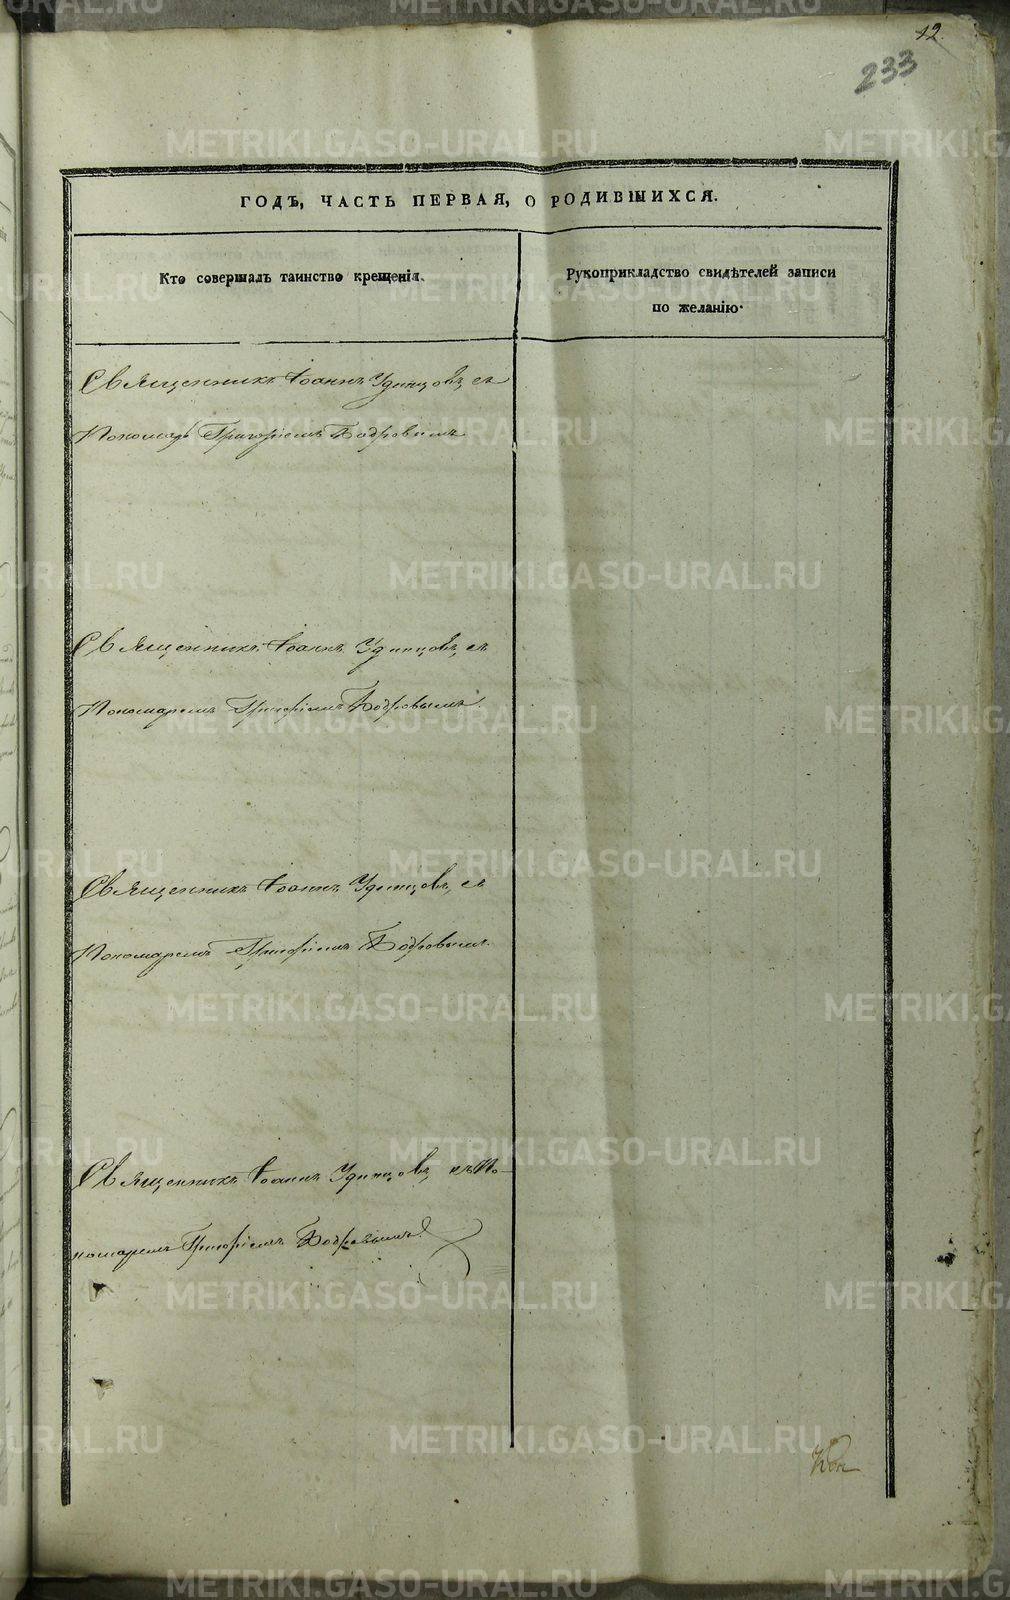 12.
233
ГОДЪ, ЧАСТЬ ПЕРВАЯ, О РОДИВШИХСЯ.
Кто совершалъ таинство крещенія.
Рукоприкладство свидѣтелей записи
по желанію.
Священникъ Іоаннъ Удинцовъ, съ
Пономарь Григоріемъ Бодровымъ
Священникъ Іоаннъ Удинцовъ, съ
Пономаремъ Григоріемъ Бодровымъ.
Священникъ Іоаннъ Удинцовъ, съ
Пономаремъ Григоріемъ Бодровымъ.
Священникъ Іоаннъ Удинцовъ, съ По-
номаремъ Григоріемъ Бодровымъ
METRIKI.GASO-URAL.RU